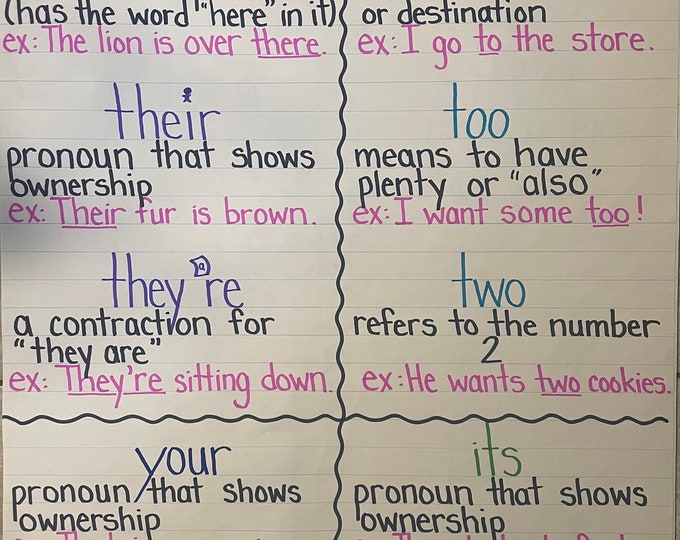 (has the word "here" in it)
ex: The lion is over there.
their
pronoun that shows
ownership
ex: Their fur is brown.
they're
a contraction for
"they are"
ex: They're sitting down.
your
pronoun that shows
ownership
or destination
ex: I go to the store.
too
means to have
plenty or "also"
ex: I want some too!
two
refers to the number
2
ex: He wants two cookies.
its
pronoun that shows
ownership